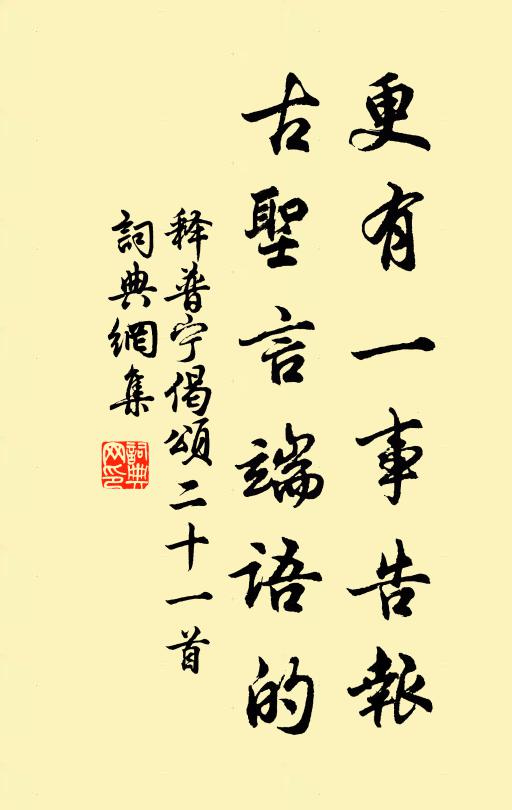 更有一事告報
古聖言端語的
释普宁偈頌二十一首
詞典網集
詞典网印